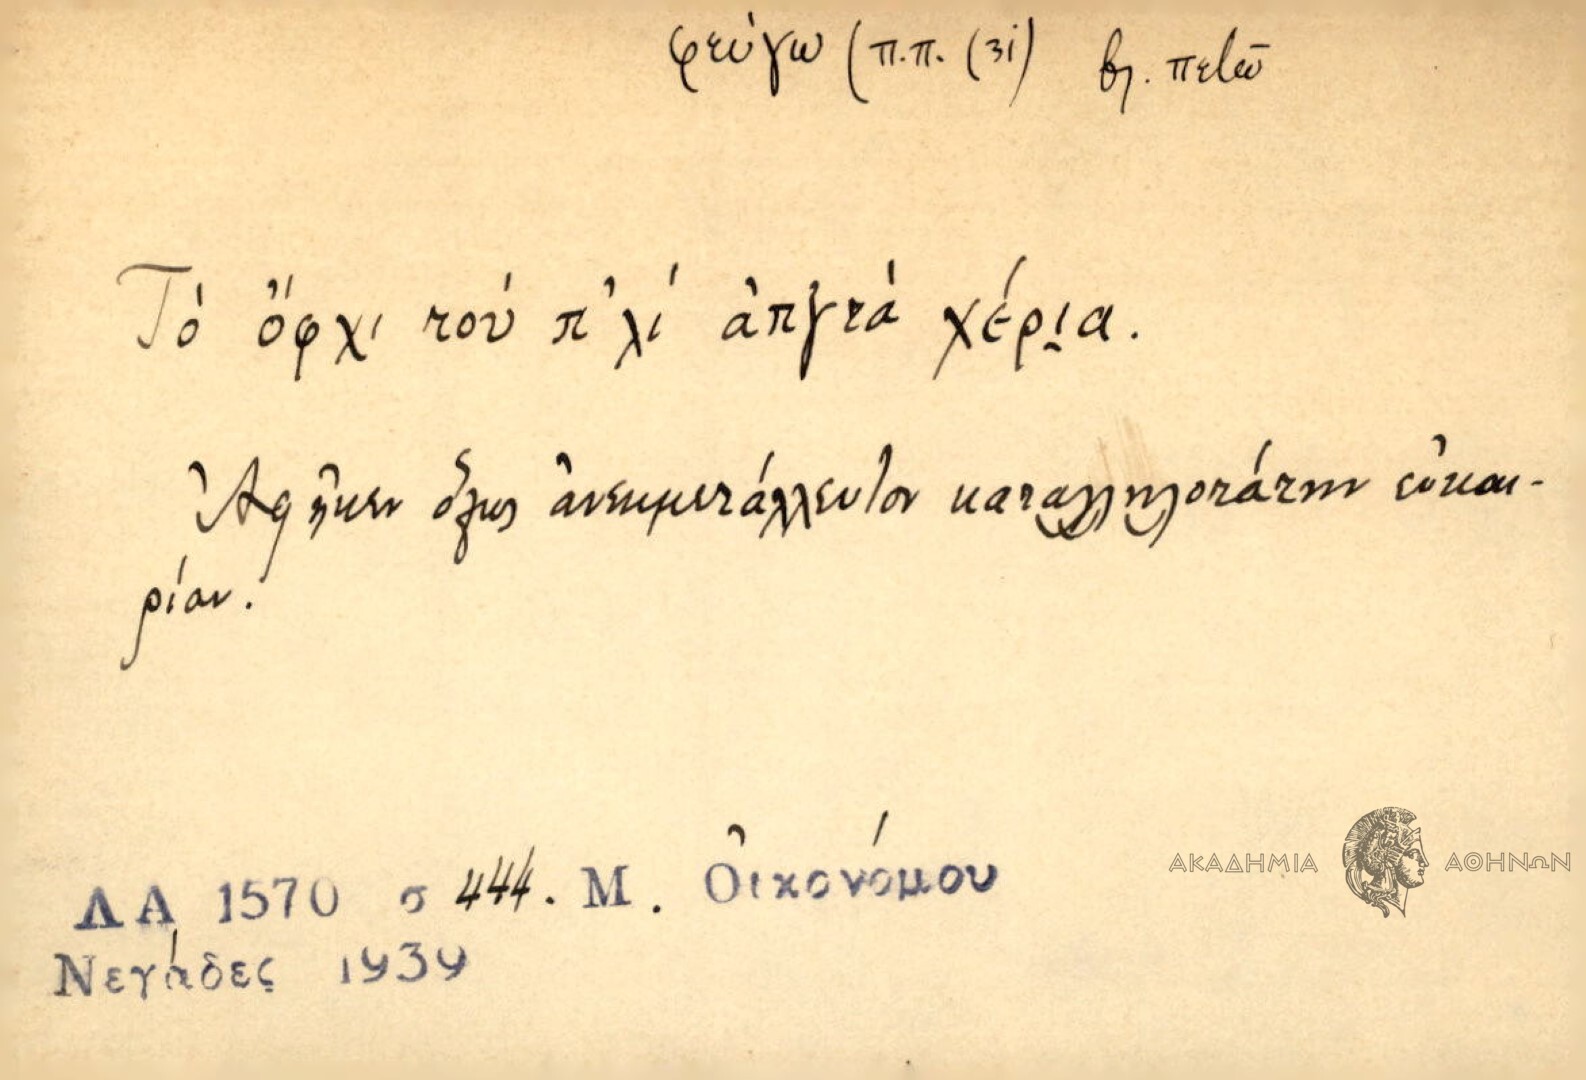 φεύγω (π.π. (31) βλ. πετῶ
Τὸ ὄφχι τοὺ π'λί ἀπ᾽γτὰ χέρια.
Ἀφῆκεν ὅμως ἀνεκμετάλλευτον καταλληλοτάτην εὐκαι-
ρίαν.
ΛΑ 1570 σ 444. Μ. Οἰκονόμου
Νεγάδες 1939
ΑΚΑΔΗΜΙΑ ΑΘΗΝΩΝ